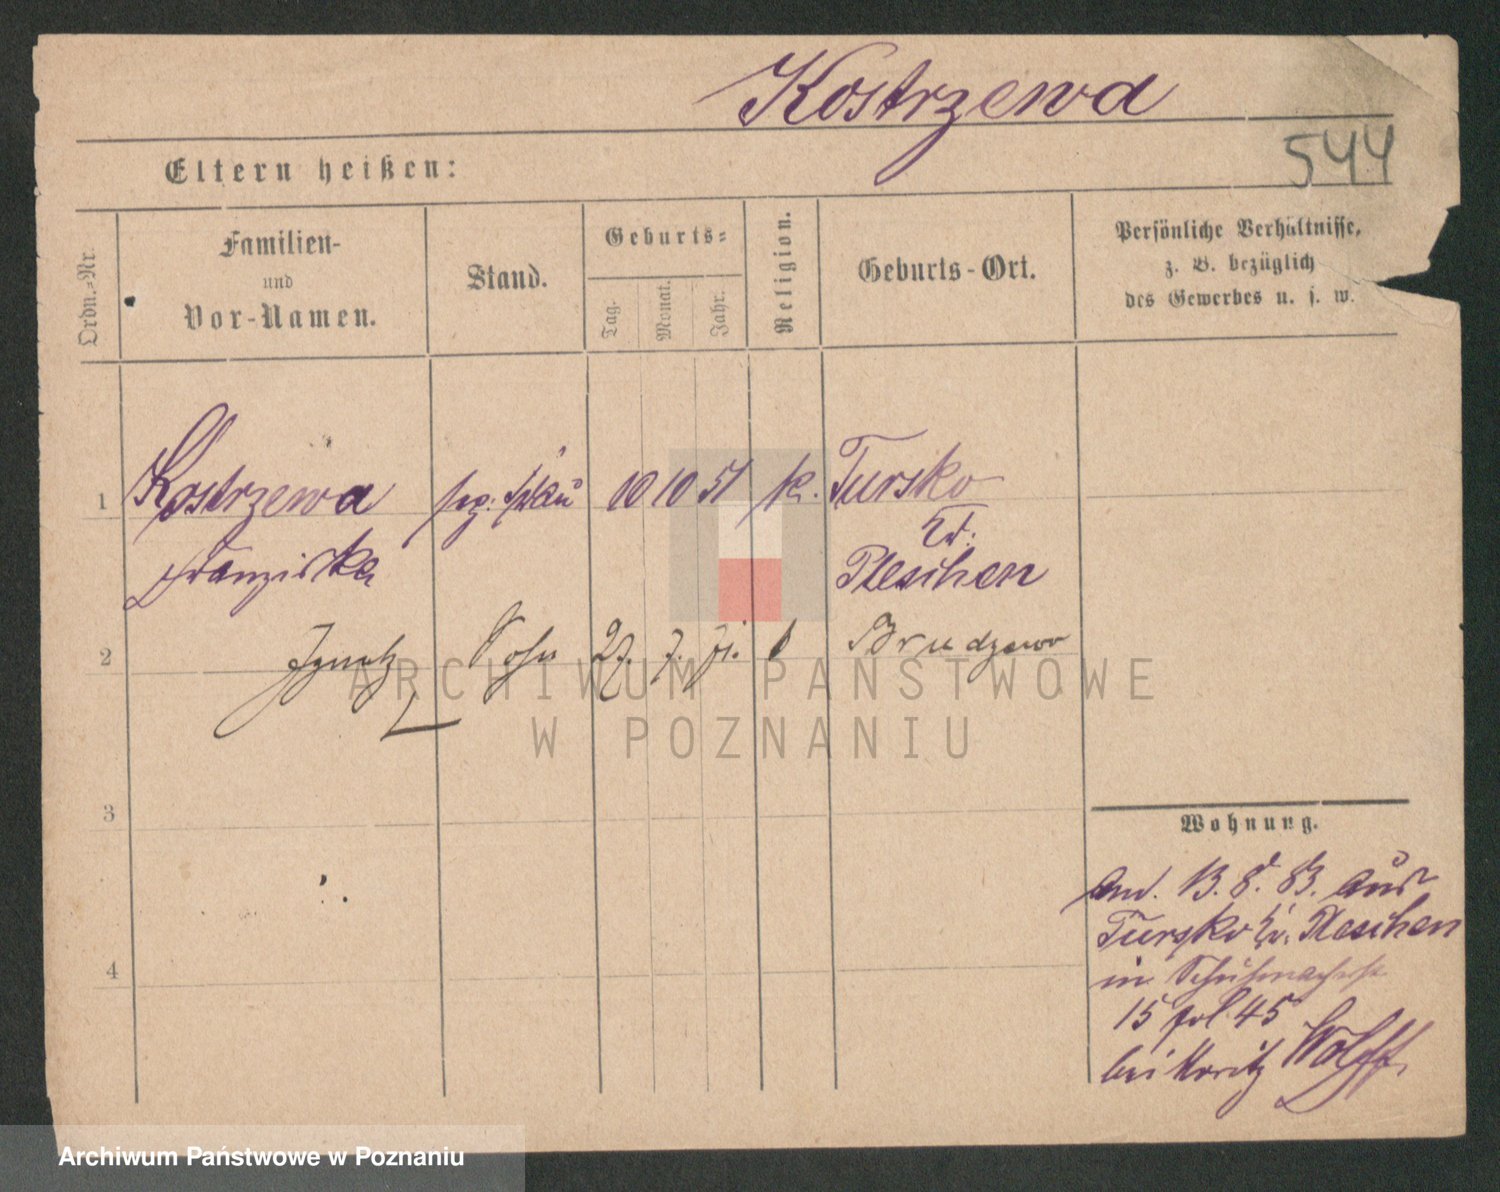 Kostrzewa
544
Eltern heißen:
Ordn.-Nr.
Familien-
und
Vor-Namen.
Stand.
Geburts-
Tag.
Monat.
Jahr.
Religion.
Geburts-Ort.
Persönliche Verhältnisse,
z. B. bezüglich
des Gewerbes u. s. w.
1
Kostrzewa
Franziska
10 10 51
k.
Tursko
Kr.
Pleschen
2
Ignatz
Sohn
27. 7.
Brudzewo
3
4
Wohnung.
an. 13. 8. 83. aus
Tursko Kr. Pleschen
in Schuhmacherstr
15 pol 45
bei Moritz Wolff
ARCHIWUM PAŃSTWOWE
W POZNANIU
Archiwum Państwowe w Poznaniu